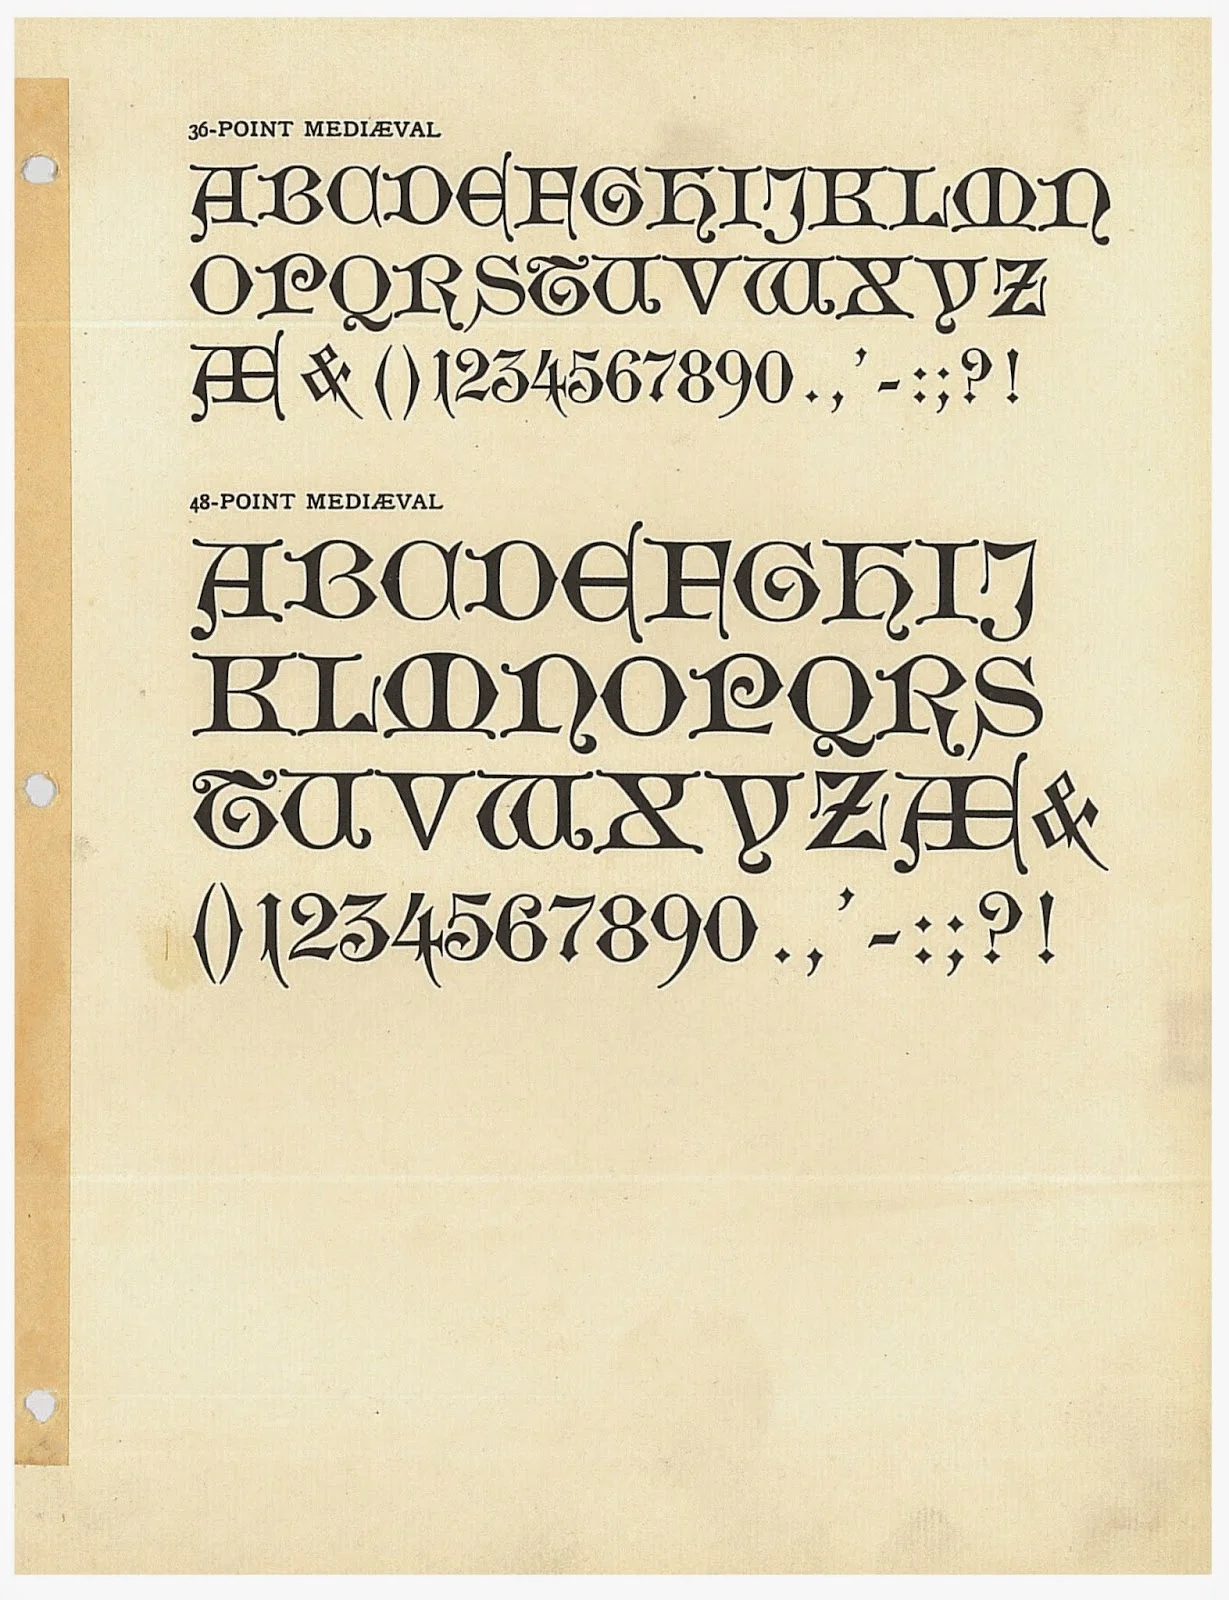 36-POINT MEDIÆVAL
ABCDEFGHIJKLMN
OPQRSTUVWXYZ
Æ & ( ) 1234567890 . , ’ - : ; ? !
48-POINT MEDIÆVAL
ABCDEFGHIJ
KLMNOPQRS
TUVWXYZÆ&
( ) 1234567890 . , ’ - : ; ? !